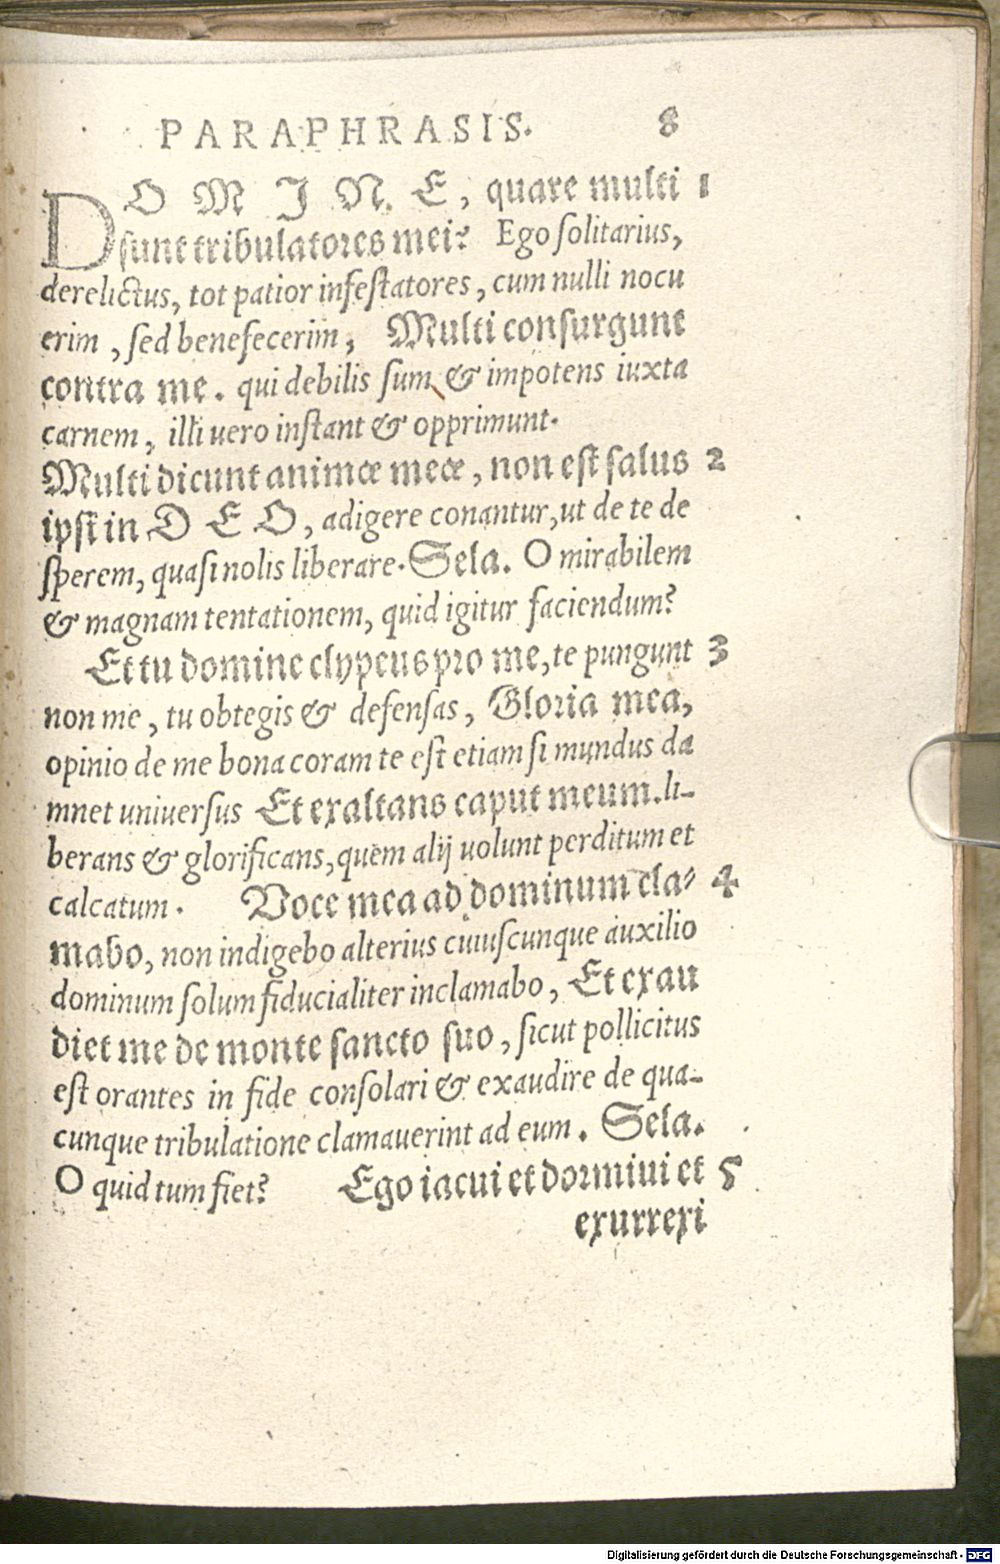 PARAPHRASIS. 8
DOMINE, quare multi 1
sunt tribulatores mei? Ego solitarius,
derelictus, tot patior infestatores, cum nulli nocu
erim, sed benefecerim; Multi consurgunt
contra me. qui debilis sum & impotens iuxta
carnem, illi uero instant & opprimunt.
Multi dicunt animæ meæ, non est salus 2
ipsi in DEO, adigere conantur, ut de te de
sperem, quasi nolis liberare. Sela. O mirabilem
& magnam tentationem, quid igitur faciendum?
Et tu domine clypeus pro me, te pungunt 3
non me, tu obtegis & defensas, Gloria mea,
opinio de me bona coram te est etiam si mundus da
mnet uniuersus Et exaltans caput meum. li-
berans & glorificans, quem alij uolunt perditum et
calcatum. Voce mea ad dominum cla- 4
mabo, non indigebo alterius cuiuscunque auxilio
dominum solum fiducialiter inclamabo, Et exau
diet me de monte sancto suo, sicut pollicitus
est orantes in fide consolari & exaudire de qua-
cunque tribulatione clamauerint ad eum. Sela.
O quid tum fiet? Ego iacui et dormiui et 5
exurrexi
Digitalisierung gefördert durch die Deutsche Forschungsgemeinschaft - DFG